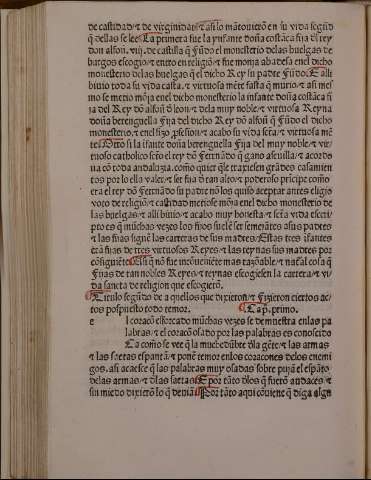 de castidad ⁊ de virginidad ⁊ assi lo mãtouierõ en su vida segũd
q̃ dellas se lee. La primera fue la ynfante doña costãça fija del rey
don alfoñ. viij. de castilla q̃ fũdo el monesterio delas huelgas de
burgos escogio ⁊ entro en religiõ ⁊ fue monja abadesa enel dicho
monesterio delas huelgas q̃ el dicho Rey su padre fũdo. E alli
biuio toda su vida casta, ⁊ virtuosa mẽte fasta q̃ murio, ⁊ asi mes
mo se metio mõja enel dicho monesterio la infante doña costãça fi
ja del Rey dõ alfoñ d leon ⁊ dela muy noble ⁊ virtuosa Reyna
doña berenguella fija del dicho Rey dõ alfoñ q̃ fũdo el dicho
monesterio, ⁊ enel fizo p̃fesion, ⁊ acabo su vida scta ⁊ virtuosa mẽ
te. Otro si la ifante doña berenguella fija del muy noble ⁊ vir
tuoso catholico scto el rey dõ Fernãdo q̃ gano a seuilla ⁊ a cordo
ua cõ toda andaluzia, como quier q̃ le traxiesen grãdes casamien
tos por lo ella valer ⁊ ser fija d tan alto ⁊ poderoso prícipe como
era el rey dõ Fernãdo su padre nõ los quiso aceptar antes eligio
voto de religiõ ⁊ castidad metiose mõja enel dicho monesterio de
las huelgas ⁊ alli biuio ⁊ acabo muy honesta ⁊ scta vida escri
pto es q̃ muchas vezes los fijos suelẽ ser semejãtes a sus padres
⁊ las fijas siguẽ las carreras de sus madres. Estas tres ifantes
erã fijas de tres virtuosos Reyes ⁊ las reynas sus madres por
cõsiguiẽte. Assi q̃ nõ fue incõueniẽte mas razõable ⁊ natal cosa q̃
fijas de tan nobles Reyes ⁊ reynas escogiesen la carrera ⁊ vi
da sancta de religion que escogierõ.
Titulo segũdo de aquellos que dixieron ⁊ fizieron ciertos ac
tos pospuesto todo temor. Cap. primo.
e l coraçõ esforçado muchas vezes se demuestra enlas pa
labras ⁊ el coraçõ osado por las palabras es conoscido
Ca como se vee q̃ la muchedũbre dla gẽte ⁊ las armas
⁊ las saetas espantã ⁊ ponẽ temor enlos coraçones delos enemi
gos, asi acaesce q̃ las palabras muy osadas sobre pujã el espãto
delas armas ⁊ dlas saetas. E por tãto dlos q̃ fuerõ audaces ⁊
sin miedo dixierõ lo q̃ deuiã. Por tãto aqui cõuiene q̃ diga algu